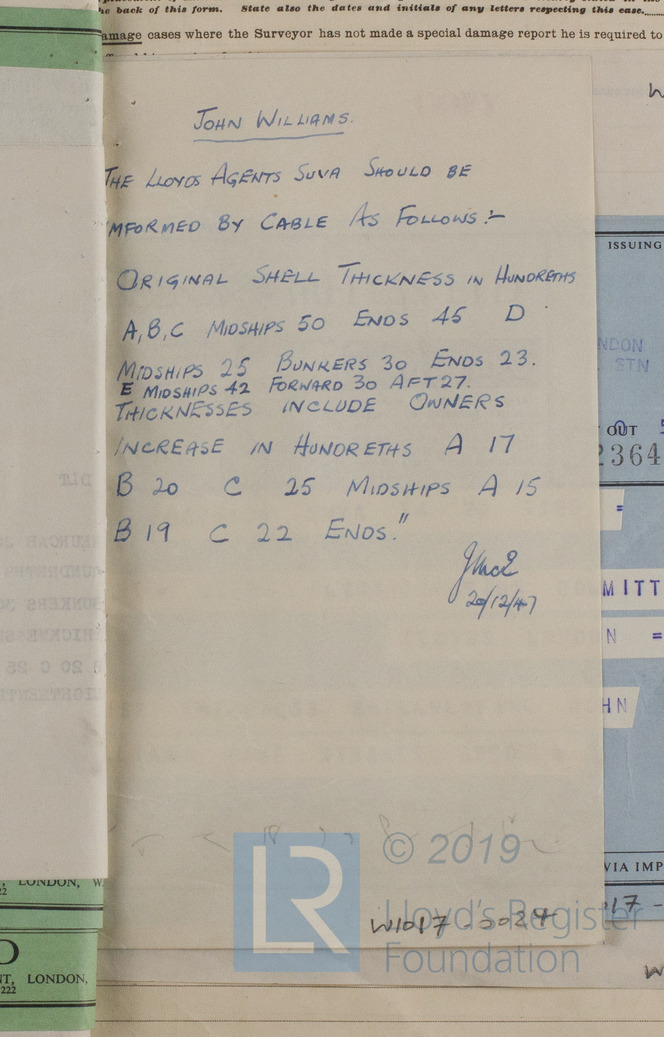 he back of this form. State also the dates and initials of any letters respecting this case.
amage cases where the Surveyor has not made a special damage report he is required to
JOHN WILLIAMS.
THE LLOYDS AGENTS SUVA SHOULD BE
INFORMED BY CABLE AS FOLLOWS:-
ORIGINAL SHELL THICKNESS IN HUNDRETHS
A, B, C MIDSHIPS 50 ENDS 45 D
MIDSHIPS 25 BUNKERS 30 ENDS 23.
E MIDSHIPS 42 FORWARD 30 AFT 27.
THICKNESSES INCLUDE OWNERS
INCREASE IN HUNDRETHS A 17
B 20 C 25 MIDSHIPS A 15
B 19 C 22 ENDS."
20/12/47
ISSUING
NDON
STN
OUT 5
2364
=
MITT
N =
HN
VIA IMP
017 -
© 2019
LR
Lloyd's Register
Foundation
W1017-0024
LONDON, W
22
D
NT, LONDON,
222